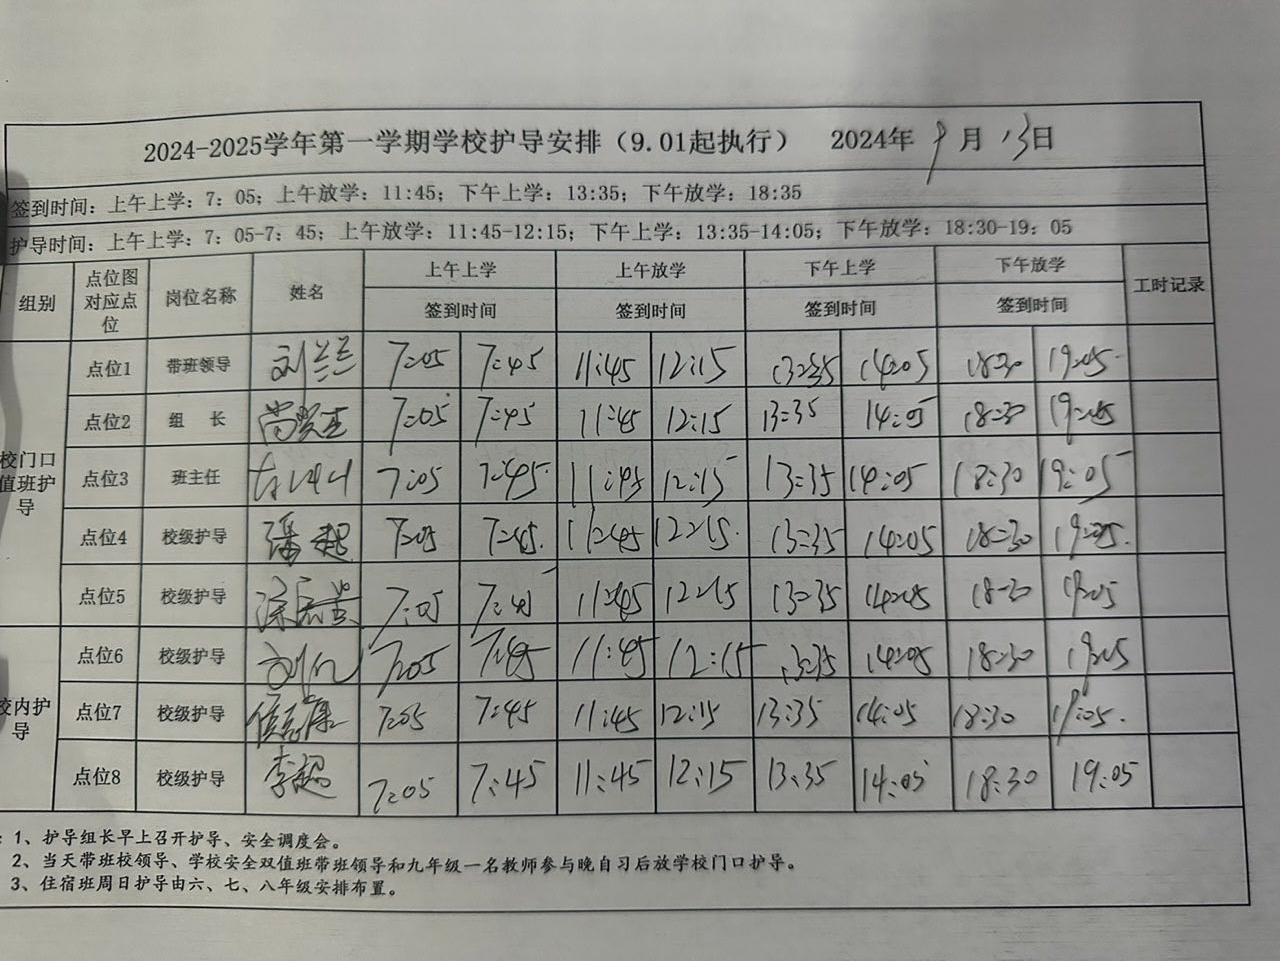 2024-2025学年第一学期学校护导安排（9.01起执行） 2024年 9 月 13 日
签到时间：上午上学：7：05；上午放学：11:45；下午上学：13:35；下午放学：18:35
护导时间：上午上学：7：05-7：45；上午放学：11:45-12:15；下午上学：13:35-14:05；下午放学：18:30-19：05
组别 点位图对应点位 岗位名称 姓名 上午上学 上午放学 下午上学 下午放学 工时记录
签到时间 签到时间 签到时间 签到时间
校门口值班护导
点位1 带班领导 刘兰兰 7:05 7:45 11:45 12:15 13:35 14:05 18:30 19:05
点位2 组 长 7:05 7:45 11:45 12:15 13:35 14:05 18:30 19:05
点位3 班主任 7:05 7:45 11:45 12:15 13:35 14:05 18:30 19:05
点位4 校级护导 潘超 7:05 7:45 11:45 12:15 13:35 14:05 18:30 19:05
点位5 校级护导 7:05 7:45 11:45 12:15 13:35 14:05 18:30 19:05
校内护导
点位6 校级护导 7:05 7:45 11:45 12:15 13:35 14:05 18:30 19:05
点位7 校级护导 7:05 7:45 11:45 12:15 13:35 14:05 18:30 19:05
点位8 校级护导 李超 7:05 7:45 11:45 12:15 13:35 14:05 18:30 19:05
：1、护导组长早上召开护导、安全调度会。
2、当天带班校领导、学校安全双值班带班领导和九年级一名教师参与晚自习后放学校门口护导。
3、住宿班周日护导由六、七、八年级安排布置。